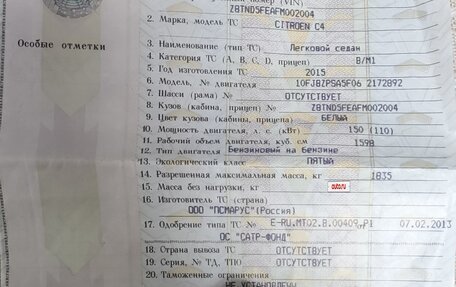 Z8TND5FEAFM002004
2. Марка, модель ТС CITROEN C4
Особые отметки
3. Наименование (тип ТС) Легковой седан
4. Категория ТС (A, B, C, D, прицеп) B/M1
5. Год изготовления ТС 2015
6. Модель, № двигателя 10FJBZPSA5F06 2172892
7. Шасси (рама) № ОТСУТСТВУЕТ
8. Кузов (кабина, прицеп) № Z8TND5FEAFM002004
9. Цвет кузова (кабины, прицепа) БЕЛЫЙ
10. Мощность двигателя, л. с. (кВт) 150 (110)
11. Рабочий объем двигателя, куб. см 1598
12. Тип двигателя Бензиновый на Бензине
13. Экологический класс ПЯТЫЙ
14. Разрешенная максимальная масса, кг 1835
15. Масса без нагрузки, кг auto.ru
16. Изготовитель ТС (страна)
ООО "ПСМАРУС"(Россия)
17. Одобрение типа ТС № E-RU.MT02.B.00409 от P1 07.02.2013
ОС "САТР-ФОНД"
18. Страна вывоза ТС ОТСУТСТВУЕТ
19. Серия, № ТД, ТПО ОТСУТСТВУЕТ
20. Таможенные ограничения
НЕ УСТАНОВЛЕНЫ